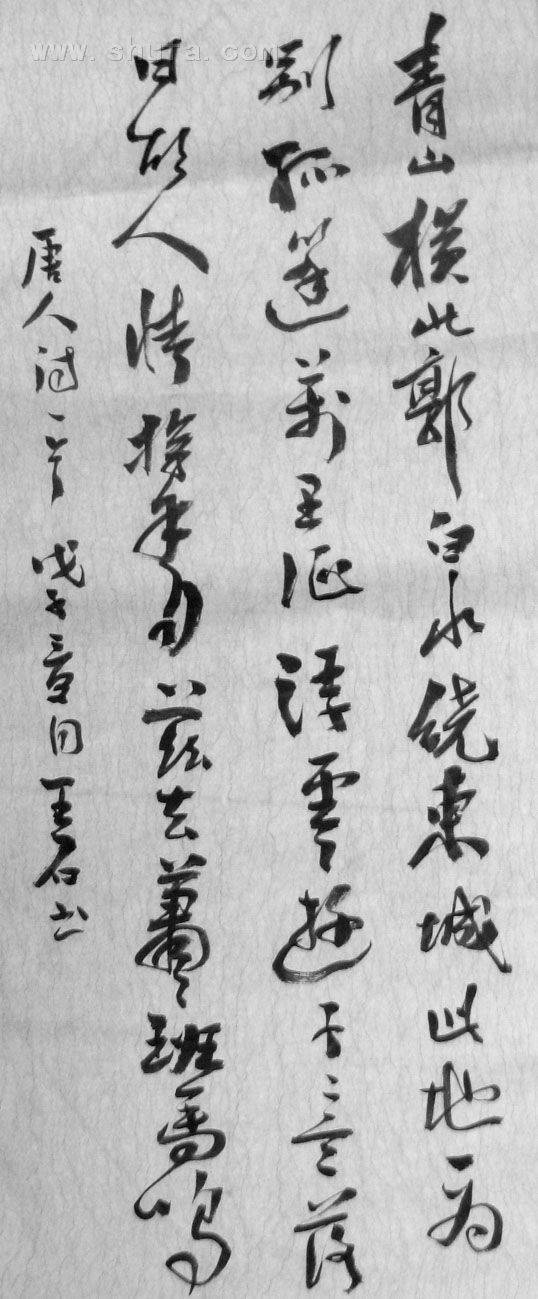 www.shufa.com
青山橫北郭白水绕東城此地一为
别孤蓬萬里征浮雲遊子意落
日故人情揮手自兹去蕭々班馬鳴
唐人诗一首 戊子夏日王石书